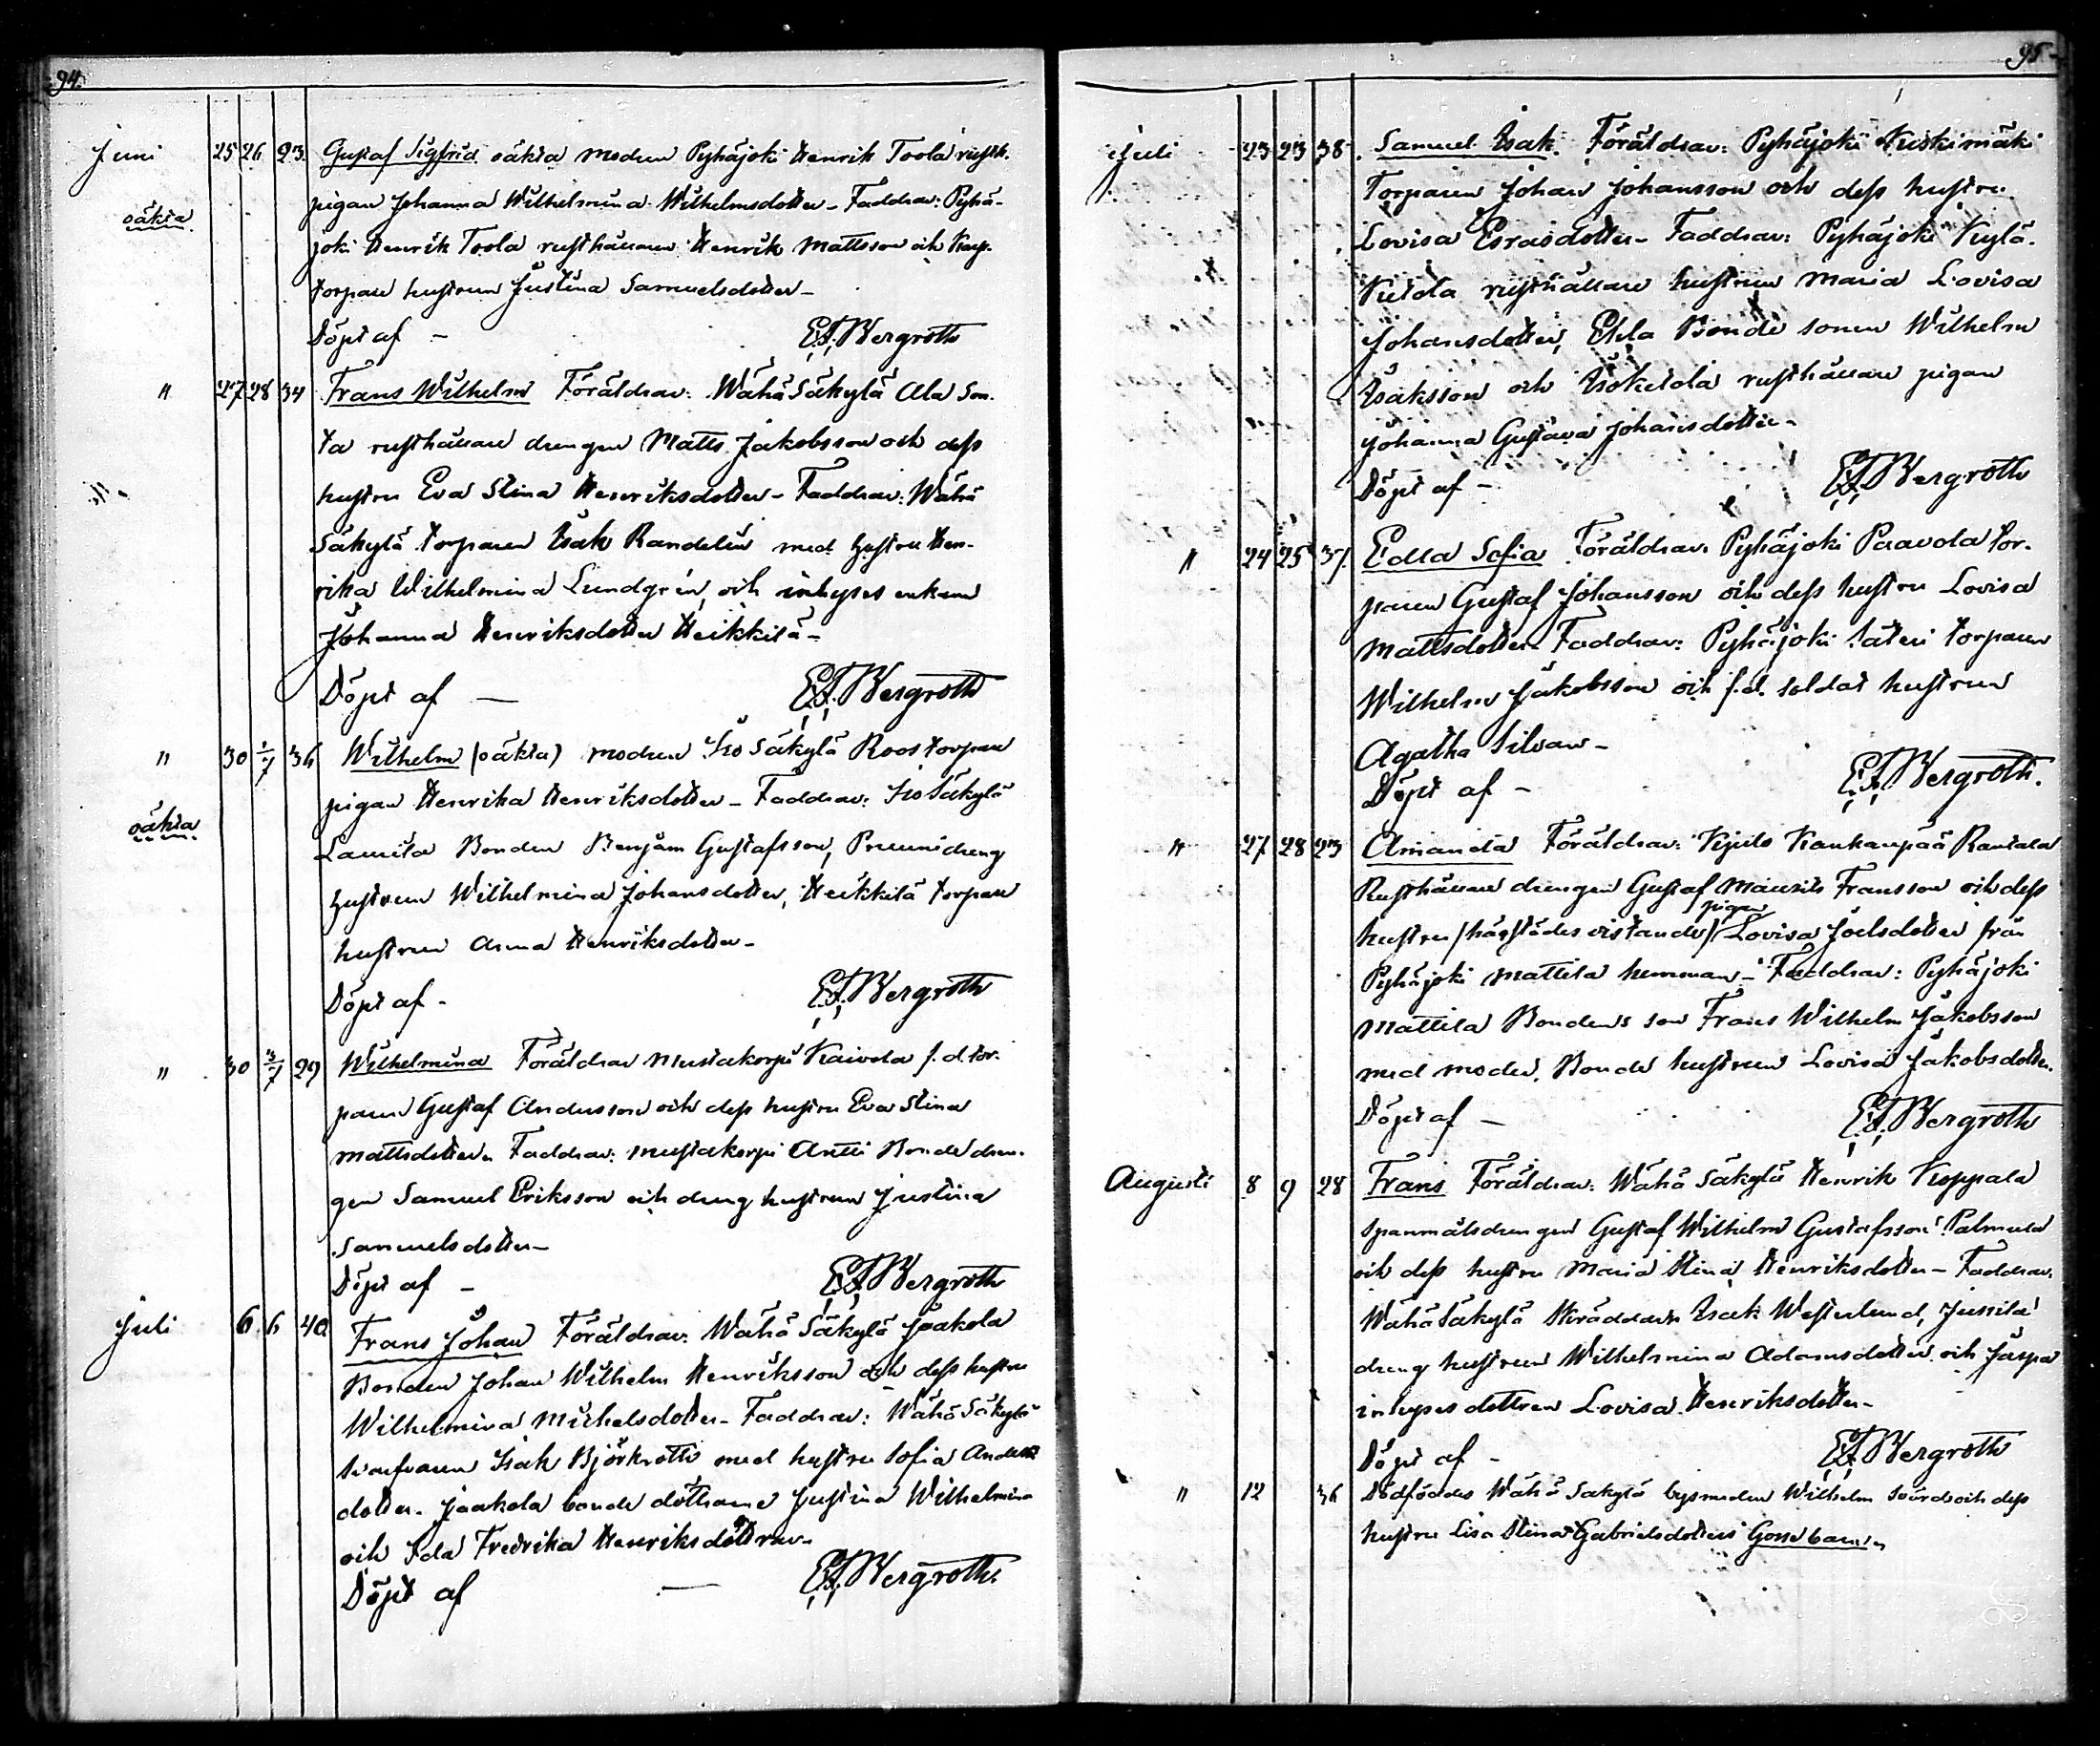 94.
Juni 25 26 23. Gustaf Sigfrid oäkta modren Pyhäjoki Henrik Toola rusth.
oäkta pigan Johanna Wilhelmina Wilhelmsdotter – Faddrar: Pyhä-
joki Henrik Toola rusthållaren Henrik Mattsson och
torpare hustrun Justina Samuelsdotter –
Döpt af – E.F. Bergroth
" 27 28 34 Frans Wilhelm Föräldrar: Wähä Säkylä Ala Son-
ta rusthållare drengen Matts Jakobsson och dess
hustru Eva Stina Henriksdotter – Faddrar: Wähä
Säkylä torparen Isak Randelin med hustru Hen-
rika Wilhelmina Lundgrén, och inhyses enkan
Johanna Henriksdotter Heikkilä –
Döpt af — E.F. Bergroth
" 30 1/7 36 Wilhelm (oäkta) modren Iso Säkylä Roos torpare
oäkta pigan Henrika Henriksdotter – Faddrar: Iso Säkylä
Laurila Bonden Benjam Gustafsson, Prunni dreng
hustrun Wilhelmina Johansdotter, Heikkilä torpare
hustrun Anna Henriksdotter –
Döpt af – E.F. Bergroth
" 30 3/7 29 Wilhelmina Föräldrar Mustakorpi Kaivola f.d. tor-
paren Gustaf Andersson och dess hustru Eva Stina
Mattsdotter. Faddrar: Mustakorpi Antti Bonde dren-
gen Samuel Eriksson och dreng hustrun Justina
Samuelsdotter –
Döpt af – E.F. Bergroth
Juli 6 6 40 Frans Johan Föräldrar: Wähä Säkylä Jaakola
Bonden Johan Wilhelm Henriksson och dess hustru
Wilhelmina Michelsdotter – Faddrar: Wähä Säkylä
Isak Björkroth med hustru Sofia Anders
dotter. Jaakola bonde döttrarne Justina Wilhelmina
och Ida Fredrika Henriksdöttrar –
Döpt af — E.F. Bergroth.
95
Juli 23 23 38. Samuel Isak. Föräldrar: Pyhäjoki Kuskimäki
Torparen Johan Johansson och dess hustru
Lovisa Esrasdotter – Faddrar: Pyhäjoki Kylä-
Kietola rusthållare hustrun Maria Lovisa
Johansdotter, Ehla Bonde sonen Wilhelm
Isaksson och Isokietola rusthållare pigan
Johanna Gustava Johansdotter –
Döpt af – E.F. Bergroth
" 24 25 37. Edla Sofia Föräldrar: Pyhäjoki Paavola tor-
paren Gustaf Johansson och dess hustru Lovisa
Mattsdotter. Faddrar: Pyhäjoki Säteri torparen
Wilhelm Jakobsson och f.d. soldat hustrun
Agatha Silvan –
Döpt af – E.F. Bergroth.
" 27 28 23 Amanda Föräldrar: Kjulo Kankanpää Rantala
Rusthållare drengen Gustaf Maurits Fransson och dess
hustru (härstädes vistande) pigan Lovisa Joelsdotter från
Pyhäjoki Mattila hemman – Faddrar: Pyhäjoki
Mattila Bondens son Frans Wilhelm Jakobsson
med moder, Bonde hustrun Lovisa Jakobsdotter.
Döpt af – E.F. Bergroth
Augusti 8 9 28 Frans Föräldrar: Wähä Säkylä Henrik Koppala
spanmålsdrengen Gustaf Wilhelm Gustafsson Palmula
och dess hustru Maria Stina Henriksdotter – Faddrar:
Wähä Säkylä Skräddarn Isak Westerlund, Jussila
dreng hustrun Wilhelmina Adamsdotter och Juspa
inhyses dottren Lovisa Henriksdotter –
Döpt af – E.F. Bergroth
" 12 36 Dödföddes Wähä Säkylä bysmeden Wilhelm och dess
hustru Lisa Stina Gabrielsdotters Gossebarn –